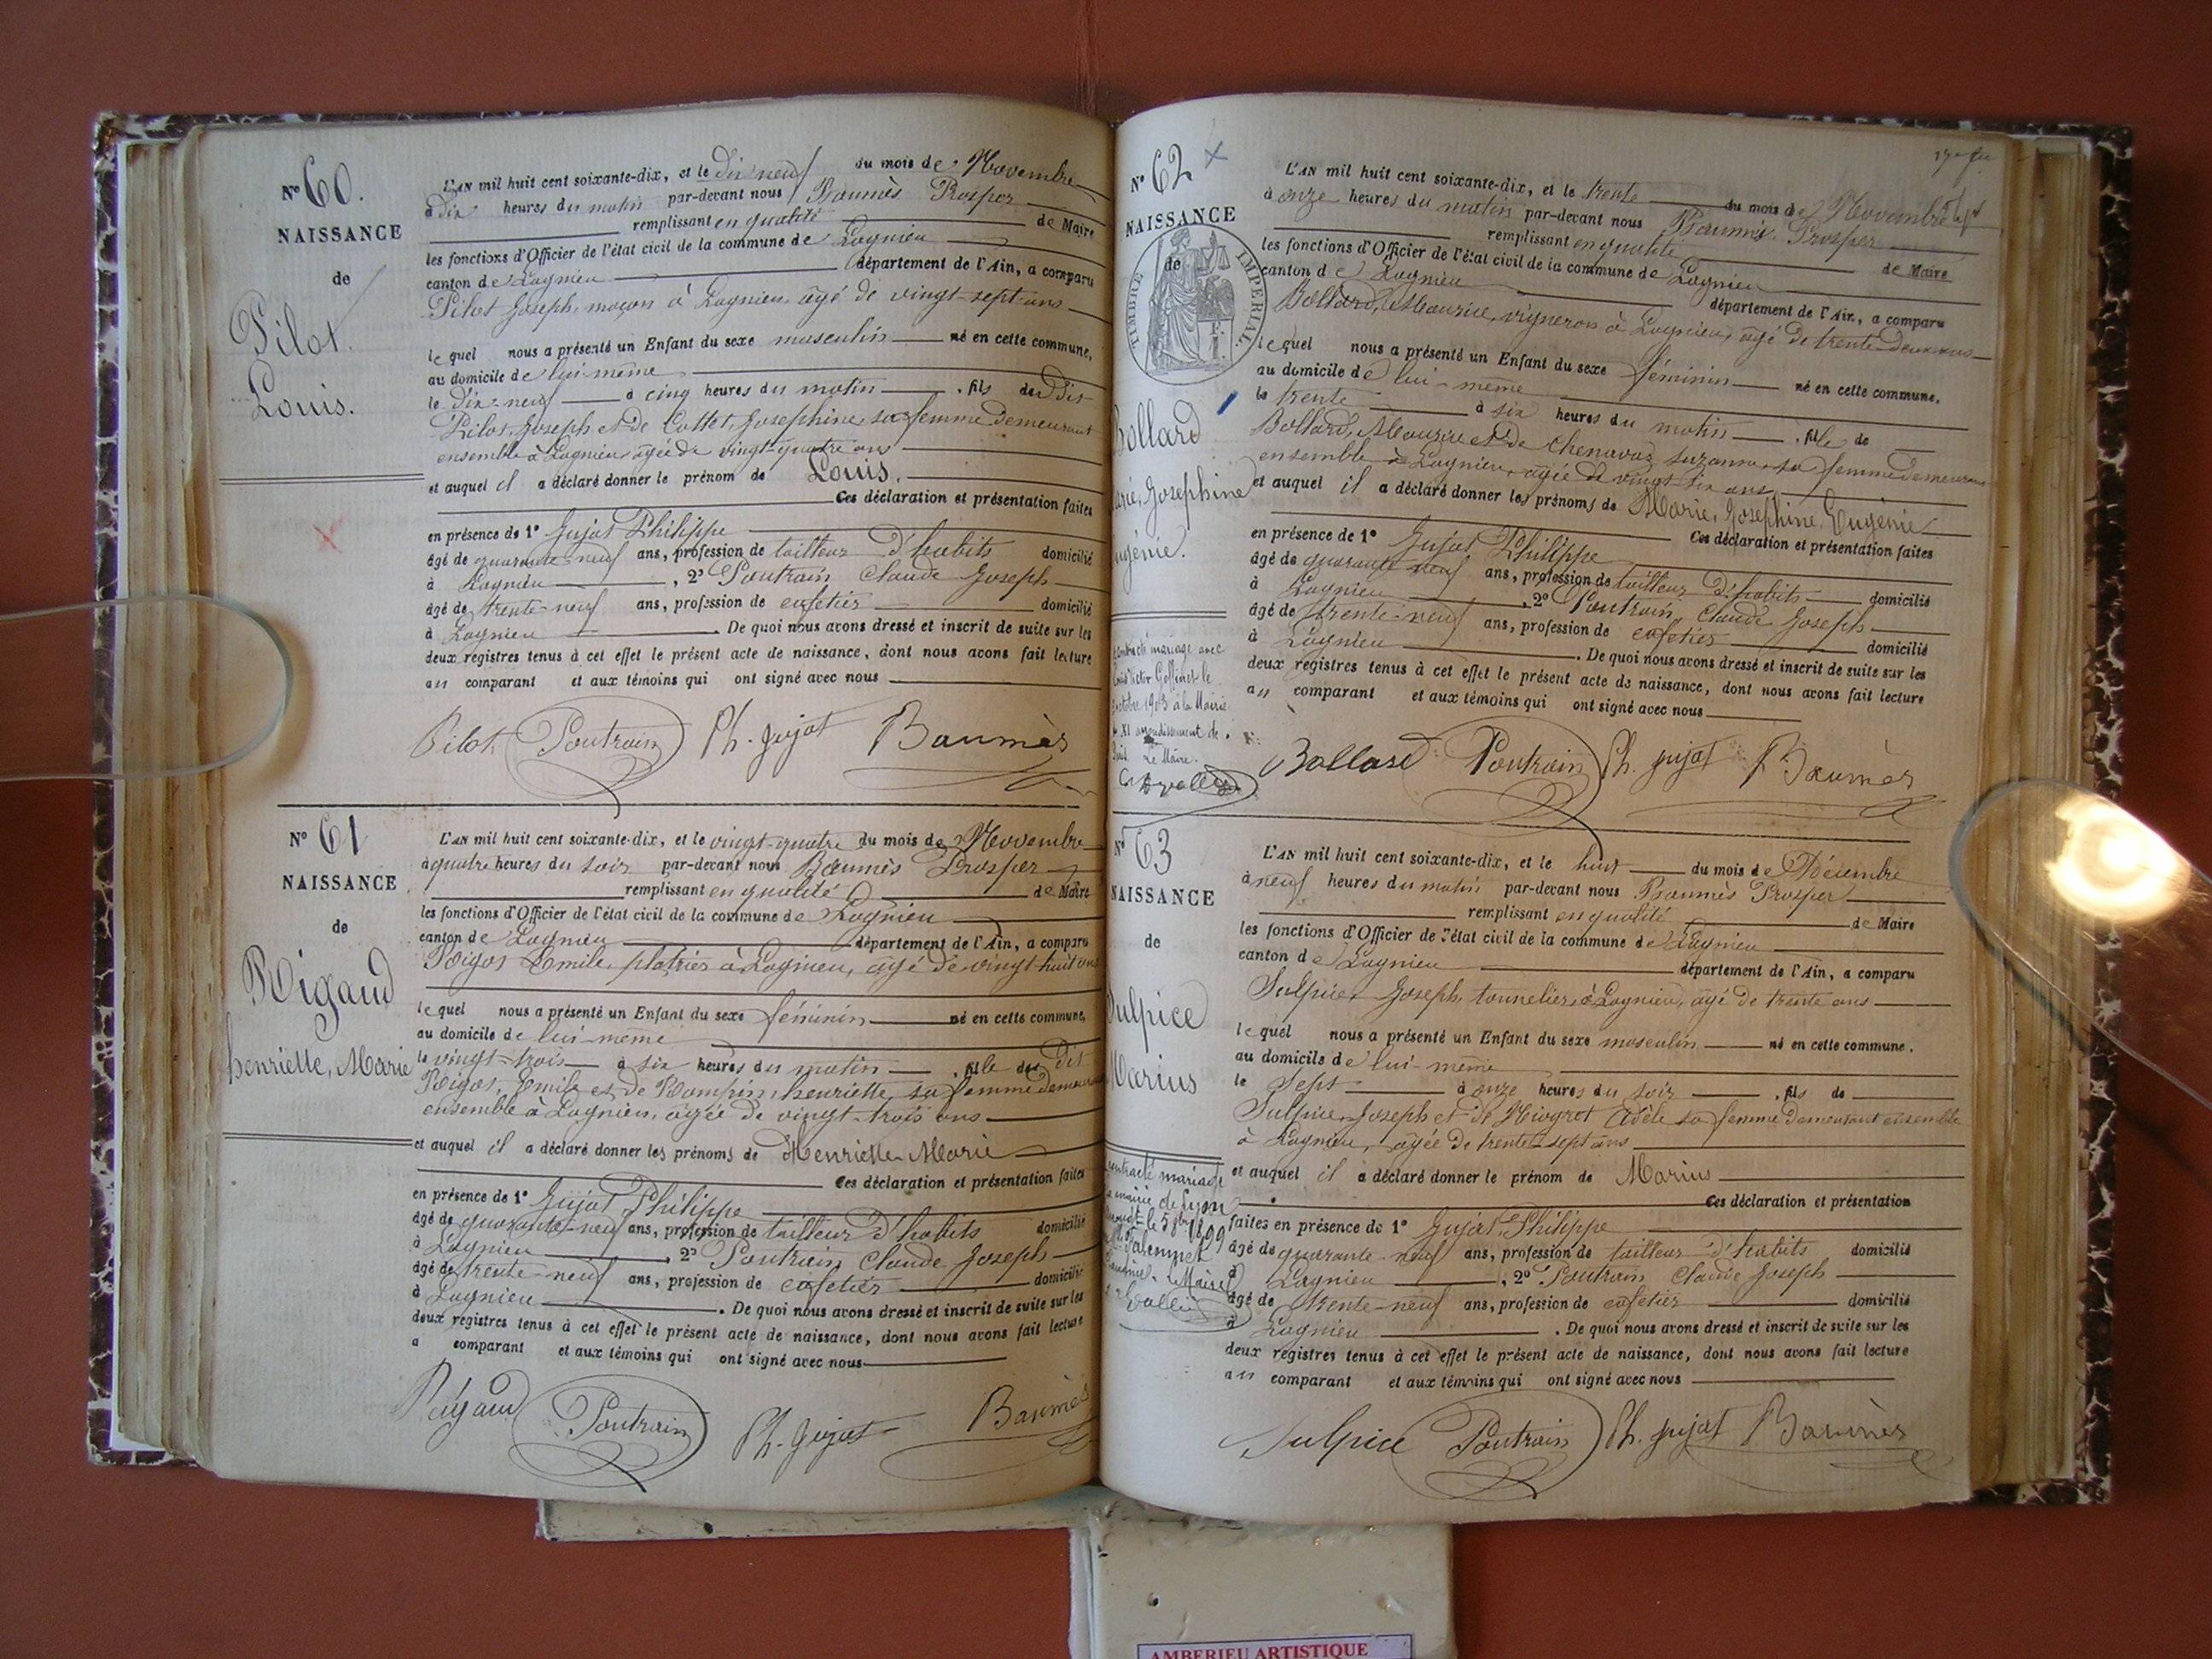 N° 60.
NAISSANCE
de
Pilot
Louis.
L'AN mil huit cent soixante-dix, et le dix neuf du mois de Novembre
à dix heures du matin par-devant nous Baumès Prosper
remplissant en qualité de Maire
les fonctions d'Officier de l'état civil de la commune de Lagnieu
canton de Lagnieu département de l'Ain, a comparu
Pilot Joseph, maçon à Lagnieu, âgé de vingt-sept ans
lequel nous a présenté un Enfant du sexe masculin né en cette commune,
au domicile de lui-même
le dix-neuf à cinq heures du matin, fils du dit
Pilot, Joseph et de Cottet, Josephine, sa femme demeurant
ensemble à Lagnieu, âgée de vingt-quatre ans
et auquel il a déclaré donner le prénom de Louis.
Ces déclaration et présentation faites
en présence de 1° Gujat Philippe
âgé de quarante-neuf ans, profession de tailleur d'habits domicilié
à Lagnieu, 2° Poutrain Claude Joseph
âgé de trente-neuf ans, profession de cafetier domicilié
à Lagnieu. De quoi nous avons dressé et inscrit de suite sur les
deux registres tenus à cet effet le présent acte de naissance, dont nous avons fait lecture
au comparant et aux témoins qui ont signé avec nous
Pilot Poutrain Ph. gujat Baumès
N° 61
NAISSANCE
de
Rigaud
henriette, Marie
L'AN mil huit cent soixante-dix, et le vingt-quatre du mois de Novembre
à quatre heures du soir par-devant nous Baumès Prosper
remplissant en qualité de Maire
les fonctions d'Officier de l'état civil de la commune de Lagnieu
canton de Lagnieu département de l'Ain, a comparu
Rigot Emile, platrier à Lagnieu, âgé de vingt huit ans
lequel nous a présenté un Enfant du sexe féminin né en cette commune,
au domicile de lui-même
le vingt-trois à six heures du matin, fille du dit
Rigot, Emile et de Dompin, henriette, sa femme demeurant
ensemble à Lagnieu, âgée de vingt-trois ans
et auquel il a déclaré donner les prénoms de Henriette Marie
Ces déclaration et présentation faites
en présence de 1° Gujat Philippe
âgé de quarante-neuf ans, profession de tailleur d'habits domicilié
à Lagnieu, 2° Poutrain Claude Joseph
âgé de trente-neuf ans, profession de cafetier domicilié
à Lagnieu. De quoi nous avons dressé et inscrit de suite sur les
deux registres tenus à cet effet le présent acte de naissance, dont nous avons fait lecture
a comparant et aux témoins qui ont signé avec nous
Rigaud Poutrain Ph. Gujat Baumès
N° 62
NAISSANCE
de
TIMBRE IMPERIAL
Bollard
Marie, Josephine
Eugénie.
contracté mariage avec
Victor
octobre 1903 à la Mairie
XI arrondissement de
Le Maire.
L'AN mil huit cent soixante-dix, et le trente du mois de Novembre
à onze heures du matin par-devant nous Baumès Prosper
remplissant en qualité de Maire
les fonctions d'Officier de l'état civil de la commune de Lagnieu
canton de Lagnieu département de l'Ain, a comparu
Bollard, Maurice, vigneron à Lagnieu, âgé de trente-deux ans
lequel nous a présenté un Enfant du sexe féminin né en cette commune,
au domicile de lui-même
le trente à six heures du matin, fille de
Bollard, Maurice et de Chenavaz Suzanne, sa femme demeurant
ensemble à Lagnieu, âgée de vingt six ans
et auquel il a déclaré donner les prénoms de Marie, Josephine, Eugénie
Ces déclaration et présentation faites
en présence de 1° Gujat Philippe
âgé de quarante neuf ans, profession de tailleur d'habits domicilié
à Lagnieu, 2° Poutrain, Claude Joseph
âgé de trente-neuf ans, profession de cafetier domicilié
à Lagnieu. De quoi nous avons dressé et inscrit de suite sur les
deux registres tenus à cet effet le présent acte de naissance, dont nous avons fait lecture
au comparant et aux témoins qui ont signé avec nous
Bollard Poutrain Ph. gujat Baumès
N° 63
NAISSANCE
de
Sulpice
Marius
contracté mariage
mairie de Lyon
le 5 1899
Maire
L'AN mil huit cent soixante-dix, et le huit du mois de Décembre
à neuf heures du matin par-devant nous Baumès Prosper
remplissant en qualité de Maire
les fonctions d'Officier de l'état civil de la commune de Lagnieu
canton de Lagnieu département de l'Ain, a comparu
Sulpice Joseph, tonnelier à Lagnieu, âgé de trente ans
lequel nous a présenté un Enfant du sexe masculin né en cette commune.
au domicile de lui-même
le Sept à onze heures du soir, fils de
Sulpice, Joseph et de Miogret Adèle sa femme demeurant ensemble
à Lagnieu, âgée de trente-sept ans
et auquel il a déclaré donner le prénom de Marius
Ces déclaration et présentation
faites en présence de 1° Gujat, Philippe
âgé de quarante-neuf ans, profession de tailleur d'habits domicilié
à Lagnieu, 2° Poutrain Claude Joseph
âgé de trente-neuf ans, profession de cafetier domicilié
à Lagnieu. De quoi nous avons dressé et inscrit de suite sur les
deux registres tenus à cet effet le présent acte de naissance, dont nous avons fait lecture
au comparant et aux témoins qui ont signé avec nous
Sulpice Poutrain Ph. gujat Baumès
AMBERIEU ARTISTIQUE